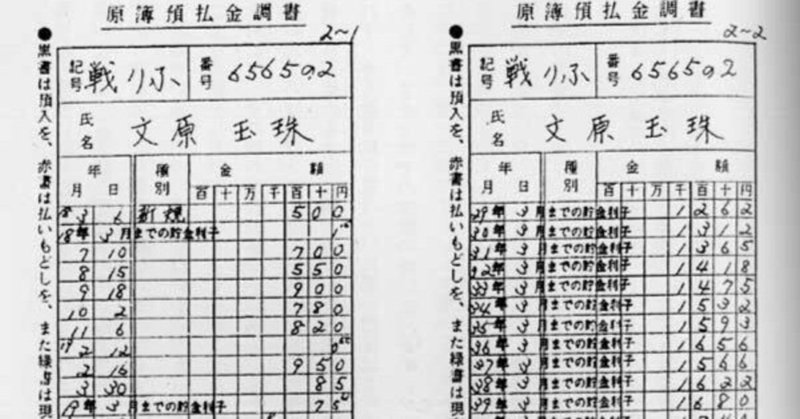 原簿預払金調書
2~1
●黒書は預入を、赤書は払いもどしを、また緑書は現
記号 戦りふ 番号 6565の2
氏名 文原玉珠
年月日 種別 金額
百十万千百十円
18 3 6 新規 500
18年3月までの貯金利子 1
7 10 700
8 15 550
9 18 900
10 2 780
11 6 820
19 2 12 0
2 16 950
3 30 85
19年3月までの貯金利子 75
原簿預払金調書
2~2
●黒書は預入を、赤書は払いもどしを、また緑書は現
記号 戦りふ 番号 6565の2
氏名 文原玉珠
年月日 種別 金額
百十万千百十円
29年3月までの貯金利子 1262
30年3月までの貯金利子 1312
31年3月までの貯金利子 1365
32年3月までの貯金利子 1418
33年3月までの貯金利子 1475
34年3月までの貯金利子 1532
35年3月までの貯金利子 1593
36年3月までの貯金利子 1656
37年3月までの貯金利子 1566
38年3月までの貯金利子 1622
39年3月までの貯金利子 1680